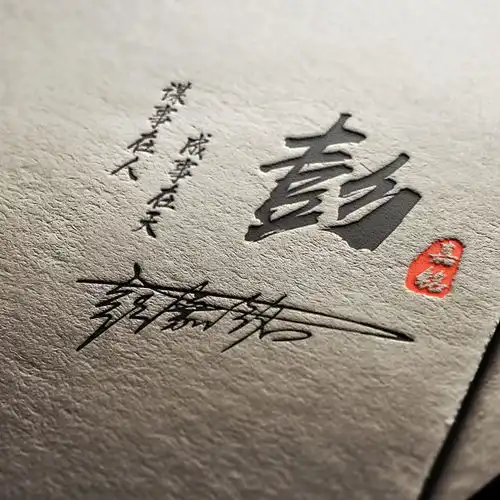 谋事在人
成事在天
彭
铭